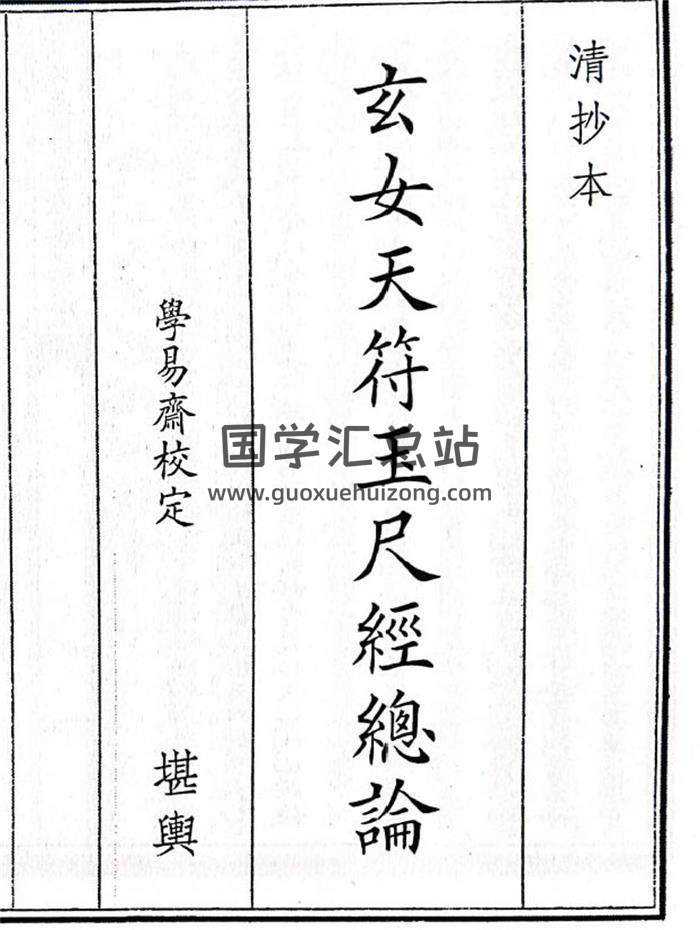 清抄本
玄女天符玉尺經總論
學易齋校定
堪輿
国学汇总站
www.guoxuehuizong.com